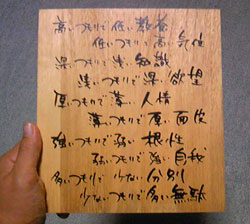 高いつもりで低い教養
低いつもりで高い気位
深いつもりで浅い知識
浅いつもりで深い欲望
厚いつもりで薄い人情
薄いつもりで厚い面皮
強いつもりで弱い根性
弱いつもりで強い自我
多いつもりで少ない分別
少ないつもりで多い無駄